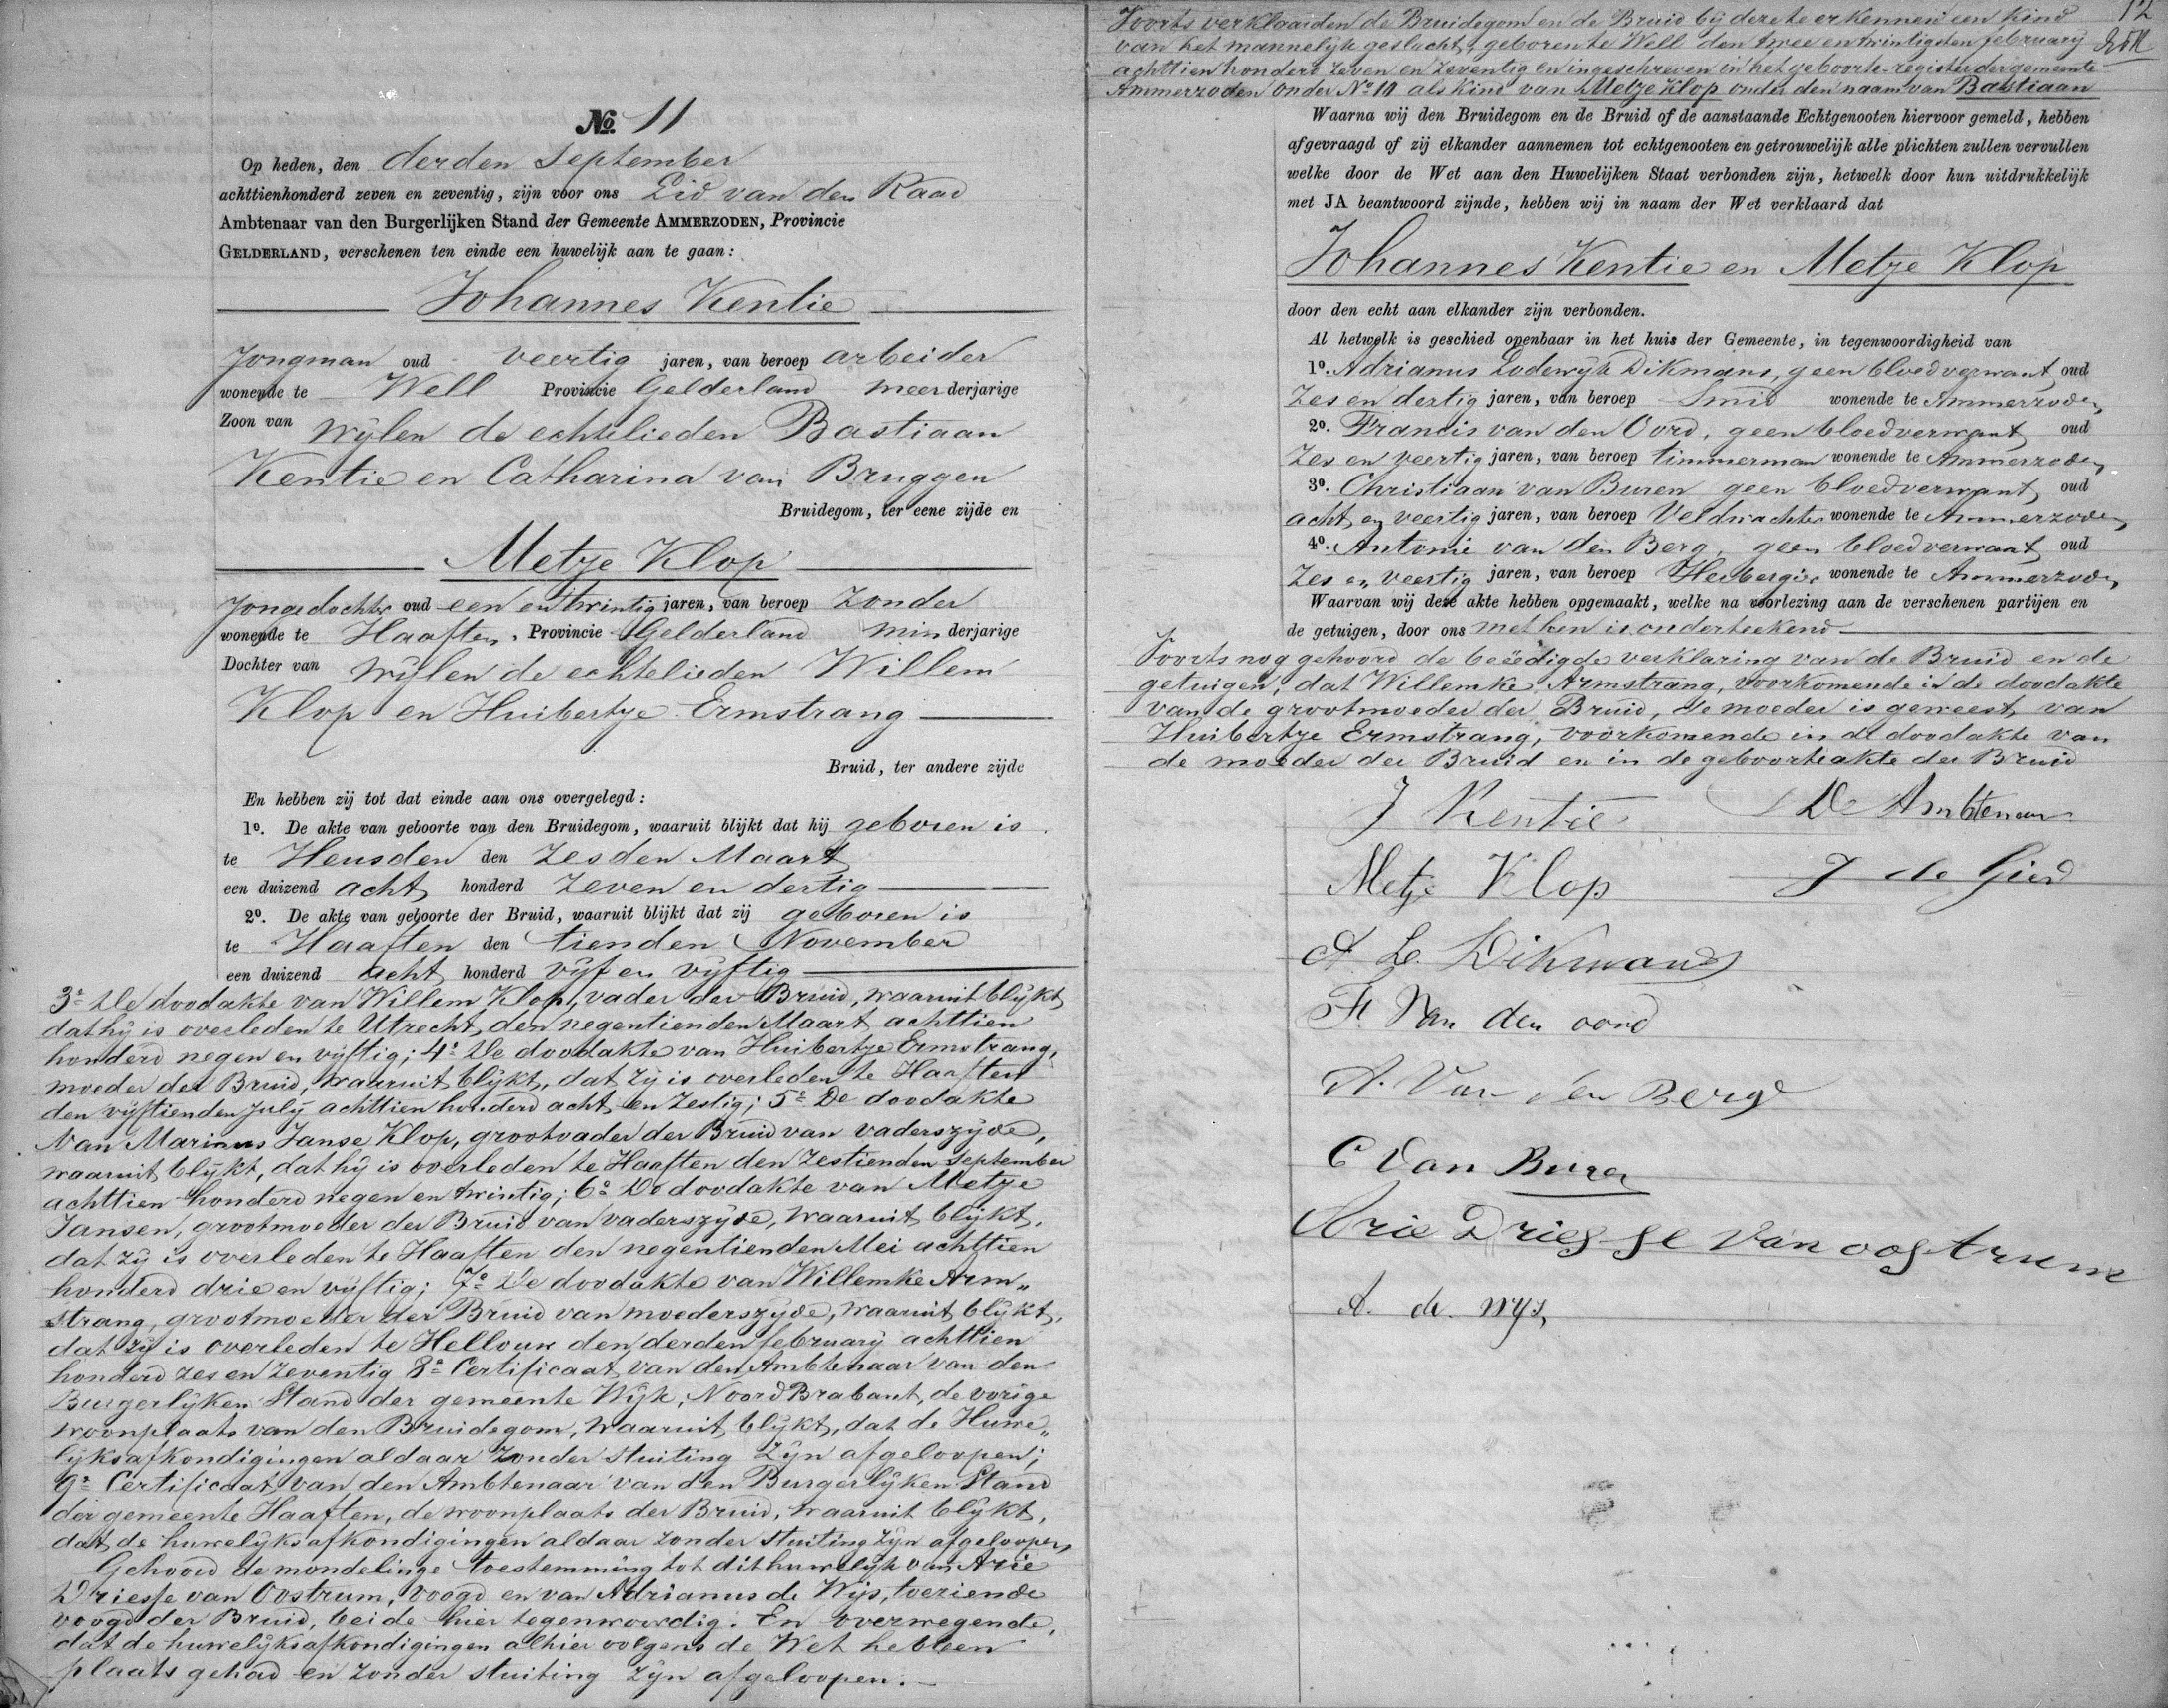 No. 11
Op heden, den derden September
achttienhonderd zeven en zeventig, zijn voor ons Lid van den Raad
Ambtenaar van den Burgerlijken Stand der Gemeente AMMERZODEN, Provincie
GELDERLAND, verschenen ten einde een huwelijk aan te gaan:
Johannes Kentie
Jongman oud veertig jaren, van beroep arbeider
wonende te Well Provincie Gelderland meerderjarige
Zoon van wijlen de echtelieden Bastiaan
Kentie en Catharina van Bruggen
Bruidegom, ter eene zijde en
Metje Klop
Jongedochter oud een en twintig jaren, van beroep zonder
wonende te Haaften, Provincie Gelderland minderjarige
Dochter van wijlen de echtelieden Willem
Klop en Huibertje Ermstrang
Bruid, ter andere zijde
En hebben zij tot dat einde aan ons overgelegd:
1o. De akte van geboorte van den Bruidegom, waaruit blijkt dat hij geboren is
te Heusden den zesden Maart
een duizend acht honderd zeven en dertig
2o. De akte van geboorte der Bruid, waaruit blijkt dat zij geboren is
te Haaften den tienden November
een duizend acht honderd vijf en vijftig
3o De doodakte van Willem Klop, vader der Bruid, waaruit blijkt
dat hij is overleden te Utrecht, den negentienden Maart achttien
honderd negen en vijftig; 4o De doodakte van Huibertje Ermstrang,
moeder der Bruid, waaruit blijkt, dat zij is overleden te Haaften
den vijftienden July achttien honderd acht en zestig; 5o De doodakte
van Marinus Janse Klop, grootvader der Bruid van vaderszijde,
waaruit blijkt, dat hij is overleden te Haaften den zestienden September
achttien honderd negen en twintig; 6o De doodakte van Metje
Jansen, grootmoeder der Bruid van vaderszijde, waaruit blijkt,
dat zij is overleden te Haaften den negentienden Mei achttien
honderd drie en vijftig; 7o De doodakte van Willemke Arm„
strang, grootmoeder der Bruid van moederszijde, waaruit blijkt,
dat zij is overleden te Hellouw den derden february achttien
honderd zes en zeventig 8o Certificaat van den Ambtenaar van den
Burgerlijken Stand der gemeente Wijk, Noord Brabant, de vorige
woonplaats van den Bruidegom, waaruit blijkt, dat de Huwe„
lijksafkondigingen aldaar zonder stuiting zijn afgeloopen;
9o Certificaat van den Ambtenaar van den Burgerlijken Stand
der gemeente Haaften, de woonplaats der Bruid, waaruit blijkt,
dat de huwelijksafkondigingen aldaar zonder stuiting zijn afgeloopen,
Gehoord de mondelinge toestemming tot dit huwelijk van Arie
Driesse van Oostrum, voogd en van Adrianus de Wijs, toeziende
voogd der Bruid, beide hier tegenwoordig. En overwegende,
dat de huwelijksafkondigingen alhier volgens de Wet hebben
plaats gehad en zonder stuiting zijn afgeloopen.
12
Voorts verklaarden de Bruidegom en de Bruid bij deze te erkennen een kind
van het mannelijk geslacht, geboren te Well den twee en twintigsten february
achttien honderd zeven en zeventig en ingeschreven in het geboorte-register der gemeente
Ammerzoden onder No 10 als kind van Metje Klop onder den naam van Bastiaan
Waarna wij den Bruidegom en de Bruid of de aanstaande Echtgenooten hiervoor gemeld, hebben
afgevraagd of zij elkander aannemen tot echtgenooten en getrouwelijk alle plichten zullen vervullen
welke door de Wet aan den Huwelijken Staat verbonden zijn, hetwelk door hun uitdrukkelijk
met JA beantwoord zijnde, hebben wij in naam der Wet verklaard dat
Johannes Kentie en Metje Klop
door den echt aan elkander zijn verbonden.
Al hetwelk is geschied openbaar in het huis der Gemeente, in tegenwoordigheid van
1o. Adrianus Lodewijk Dikmans, geen bloedverwant, oud
Zes en dertig jaren, van beroep Smid wonende te Ammerzoden,
2o. Francis van den Oord, geen bloedverwant, oud
Zes en veertig jaren, van beroep timmerman wonende te Ammerzoden,
3o. Christiaan van Buren geen bloedverwant, oud
acht en veertig jaren, van beroep Veldwachter wonende te Ammerzoden,
4o. Antonie van den Berg, geen bloedverwant, oud
Zes en veertig jaren, van beroep Herbergier wonende te Ammerzoden,
Waarvan wij deze akte hebben opgemaakt, welke na voorlezing aan de verschenen partijen en
de getuigen, door ons met hen is onderteekend
Voorts nog gehoord de beëedigde verklaring van de Bruid en de
getuigen, dat Willemke Armstrang, voorkomende in de doodakte
van de grootmoeder der Bruid, de moeder is geweest van
Huibertje Ermstrang, voorkomende in de doodakte van
de moeder der Bruid en in de geboorteakte der Bruid
J Kentie De Ambtenaar
Metje Klop J de Gier
A. L. Dikmans
F. Van den oord
A. Van den Berg
C van Buren
Arie Driesse van oostrum
A. de wijs